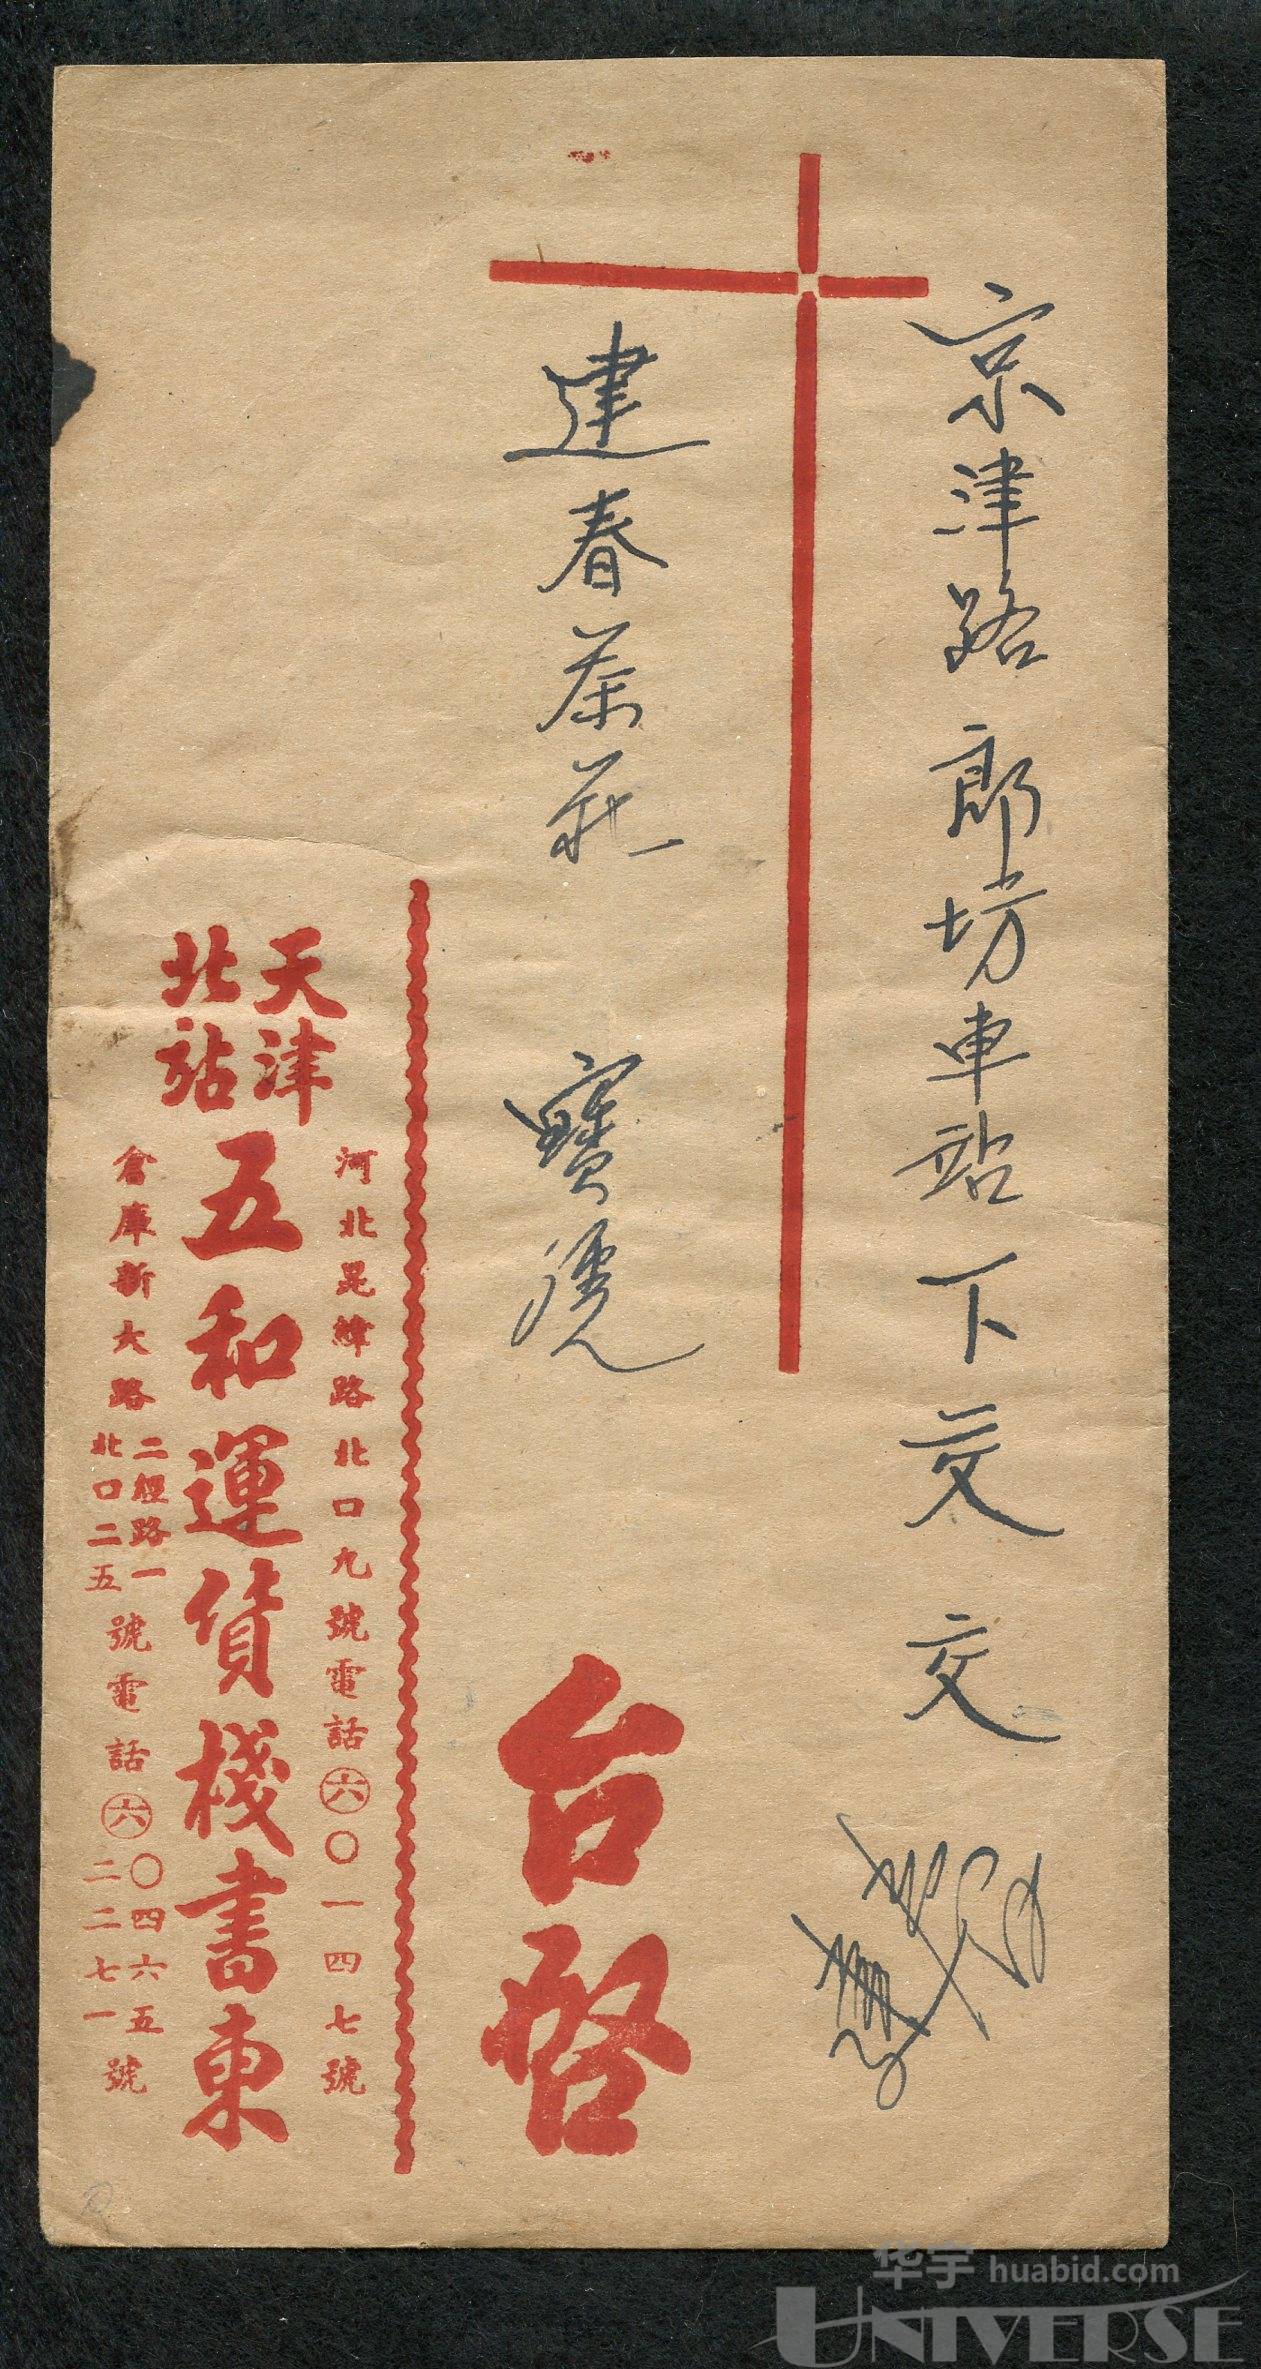 京津路郎坊車站下交交
建春茶莊 寶號
台啓
河北昆緯路北口九號電話六〇一四七號
天津北站
五和運貨棧書柬
倉庫新大路二經路一北口二五號電話六〇四六五二二七一號
华宇 huabid.com
UNIVERSE